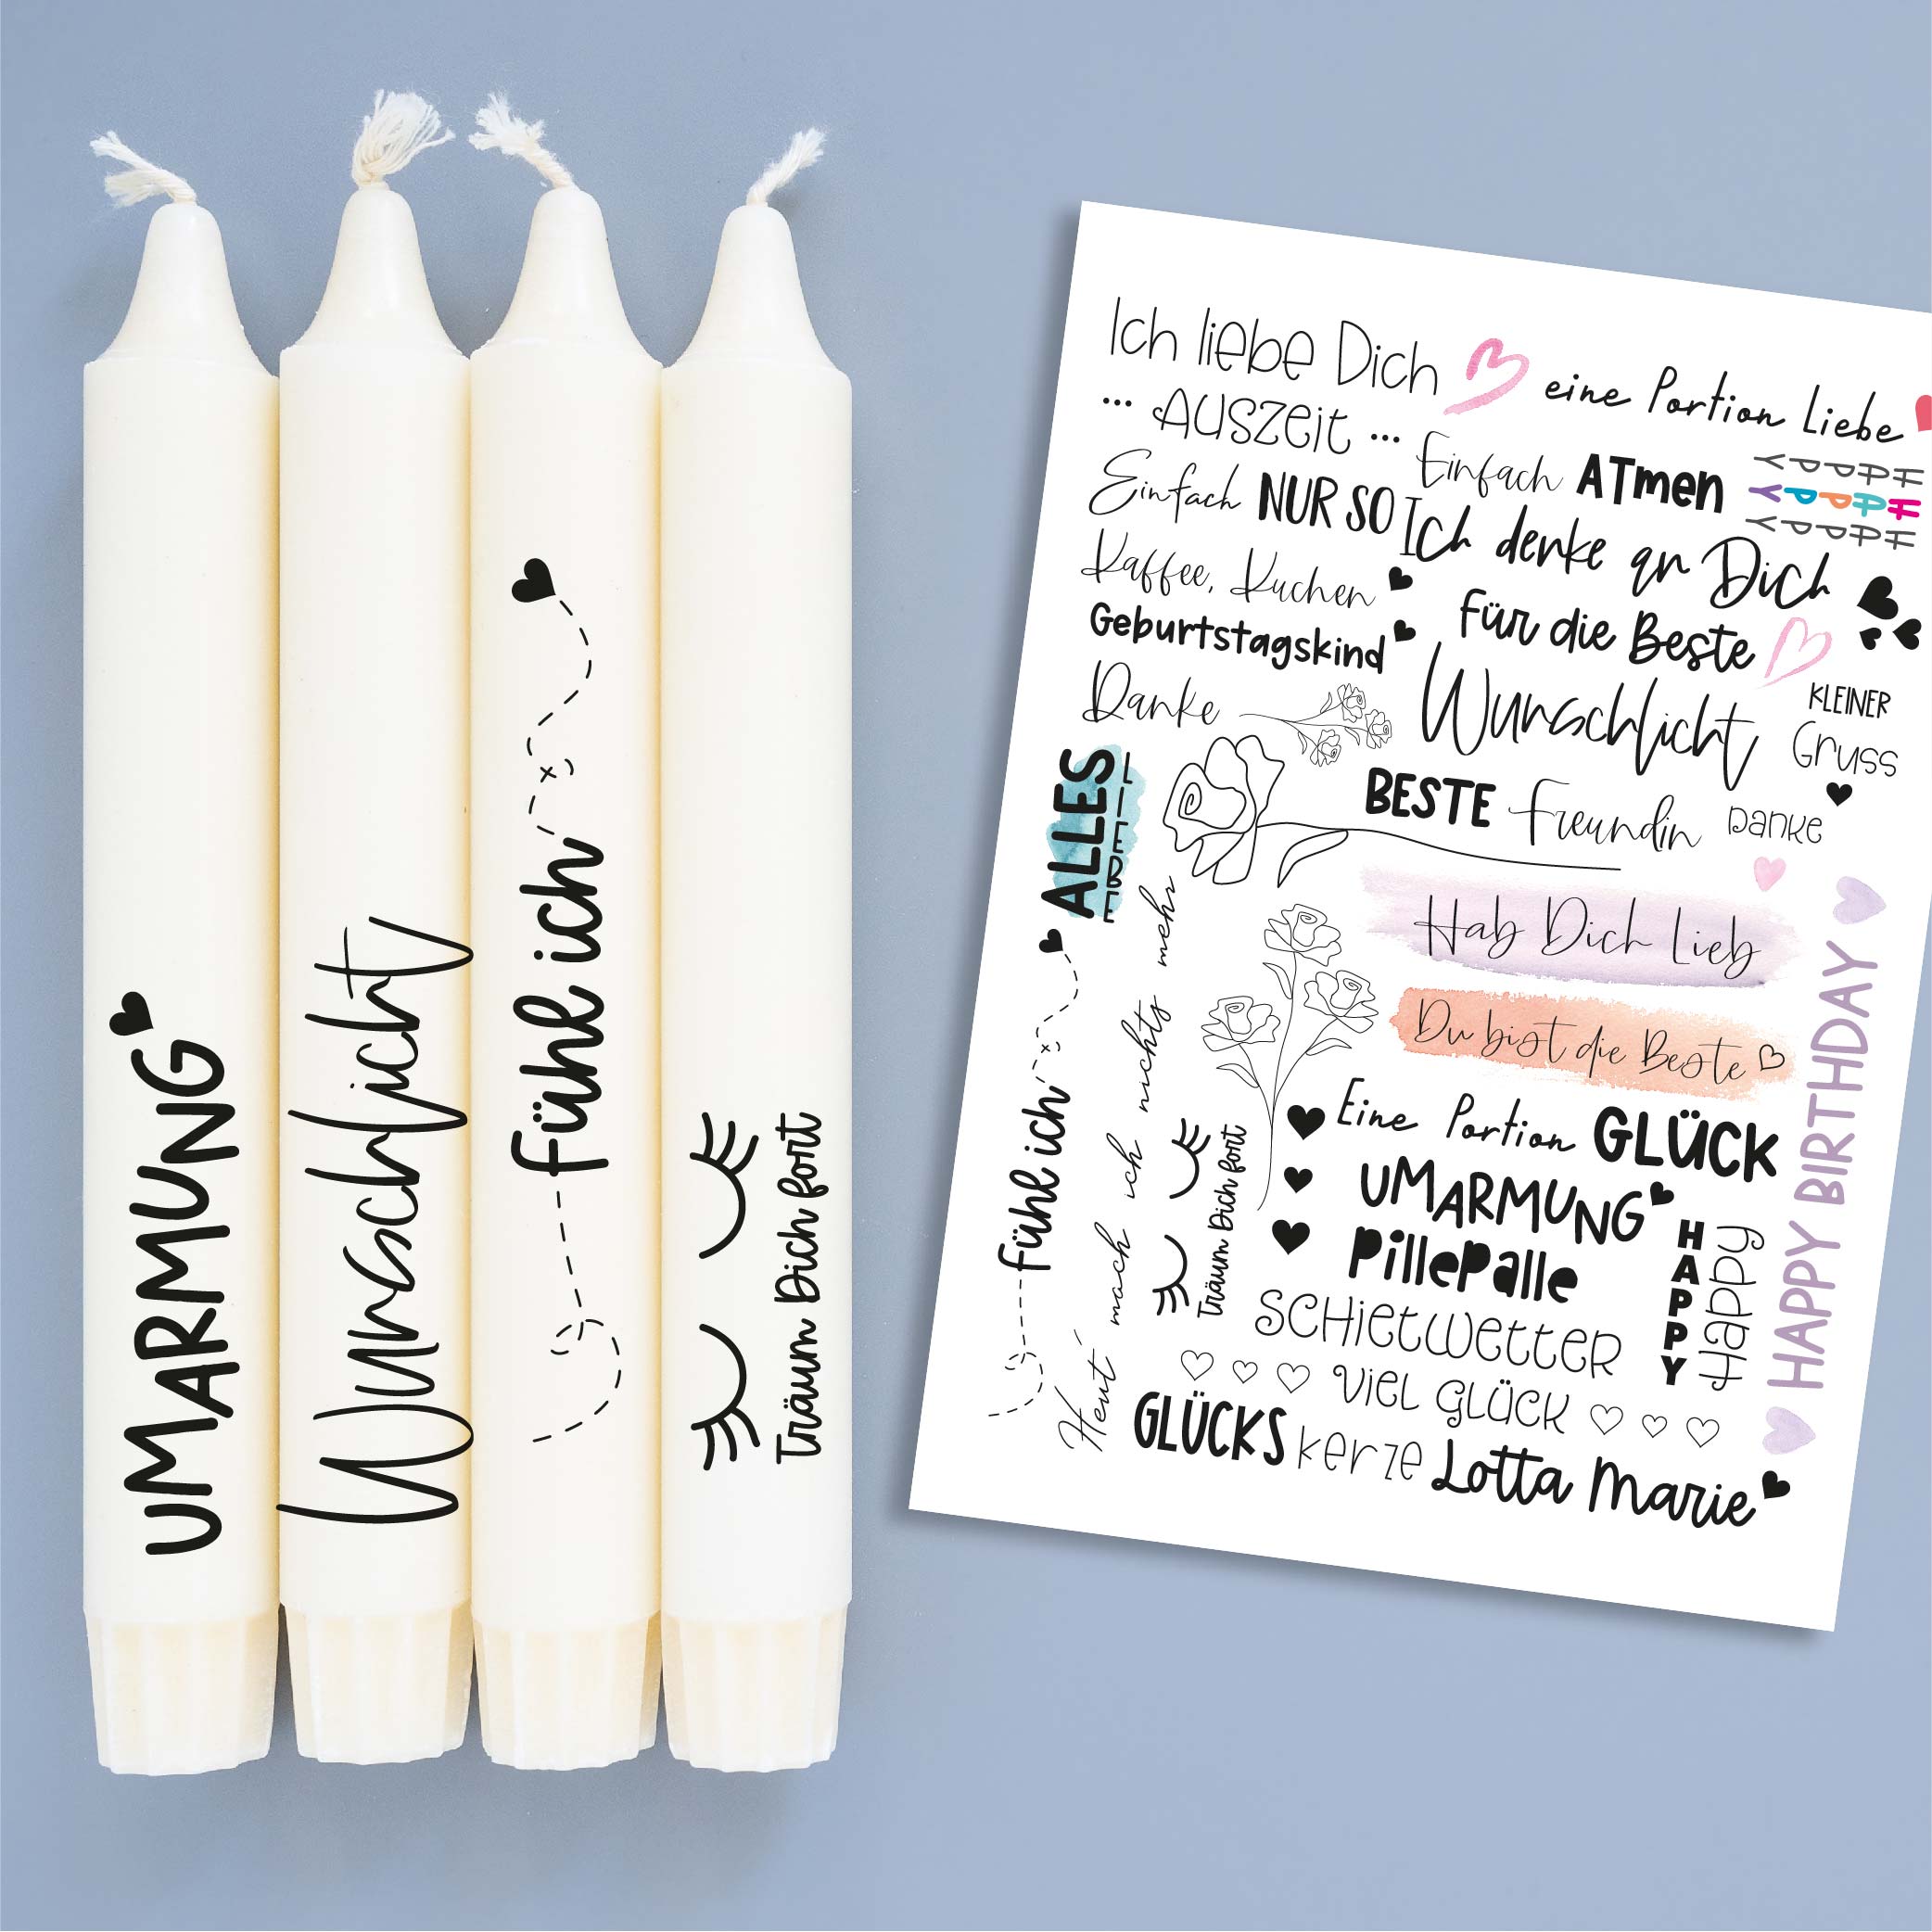 uMARMUNG
Wunschlicht
Fühl ich
Träum Dich fort
Ich liebe Dich
eine Portion Liebe
... AUSZeit ...
Einfach ATmen
HAPPY
HAPPY
HAPPY
Einfach NUR SO
Ich denke an Dich
Kaffee, Kuchen
Geburtstagskind
Für die Beste
Danke
Wunschlicht
KLEINER
Gruss
ALLES
LIEBE
BESTE Freundin
Danke
Hab Dich Lieb
Du bist die Beste
Fühl ich
Heut' mach ich nichts mehr
Träum Dich fort
Eine Portion GLÜCK
uMARMUNG
PillePalle
SCHietWetter
HAPPY
Happy
HAPPY BIRTHDAY
Viel Glück
GLÜCKS kerze
Lotta Marie